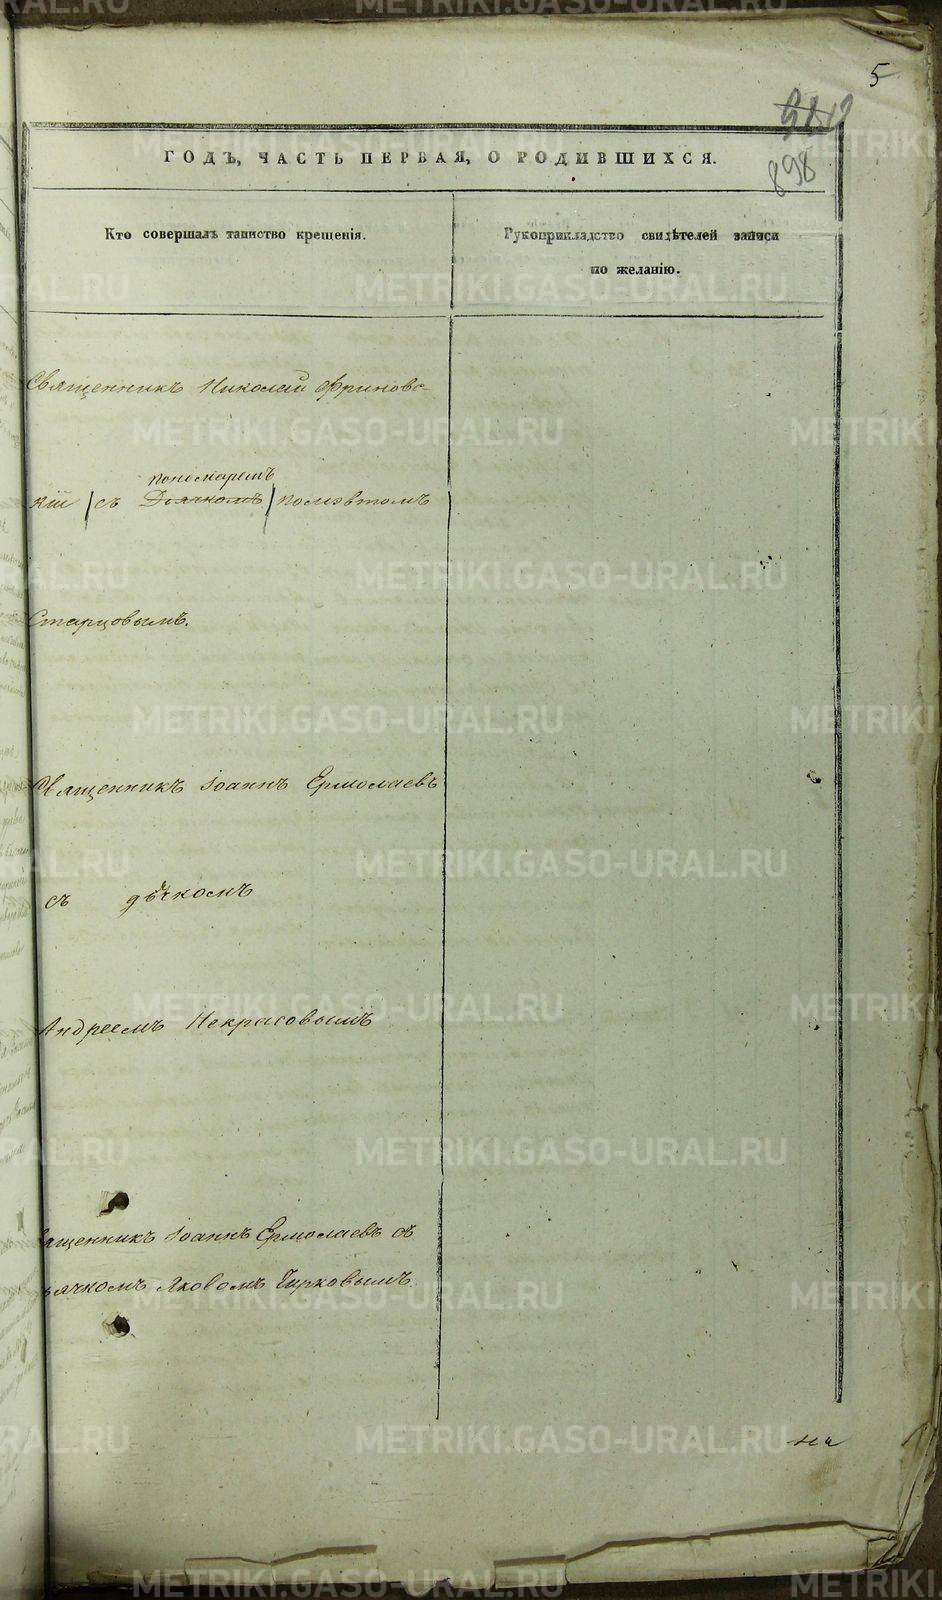 5
898
ГОДЪ, ЧАСТЬ ПЕРВАЯ, О РОДИВШИХСЯ.
Кто совершалъ таинство крещенія.
Рукоприкладство свидѣтелей записи
по желанію.
Священникъ Николай Фриновс-
пономаремъ
кій /съ Дьячкомъ/
Старцовымъ.
Священникъ Іоаннъ Ермолаевъ
съ дьячкомъ
Андреемъ Некрасовымъ
ященникъ Іоаннъ Ермолаевъ съ
ьячкомъ Яковомъ Чирковымъ
METRIKI.GASO-URAL.RU